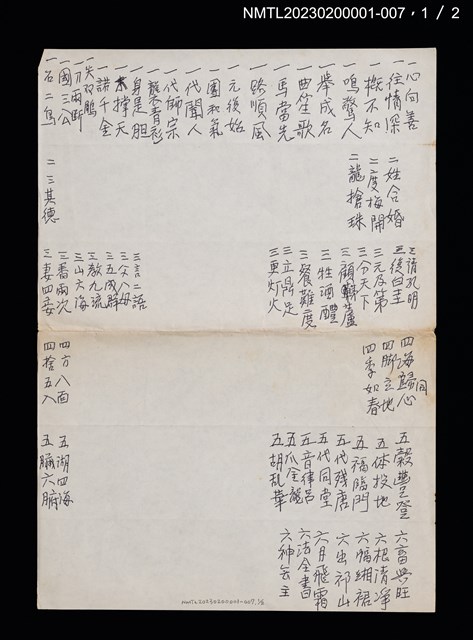 NMTL20230200001-007，1 / 2
一心向善
一往情深
一概不知
一鳴驚人
一舉成名
一曲笙歌
一馬當先
一路順風
一元後始
一團和氣
一代聞人
一代師宗
一身是胆
一木撑天
一諾千金
一刀兩斷
一國三公
一石二鳥
二姓合婚
二度梅開
二龍搶珠
二三其德
三請孔明
三元及第
三分天下
三顧茅蘆
三牲酒醴
三餐難度
三立鼎足
三更灯火
三言二語
三五成群
三教九流
三山六海
三番兩次
三妻四妾
四海歸心
同
四脚立地
四季如春
四方八面
四捨五入
五穀豐登
五体投地
五福臨門
五代残唐
五代同堂
五音律呂
五爪金龍
五胡乱華
五湖四海
五臟六腑
六畜興旺
六根清净
六幅湘裙
六出祁山
六月飛霜
六法全書
六神無主
NMTL20230200001-007,1/2